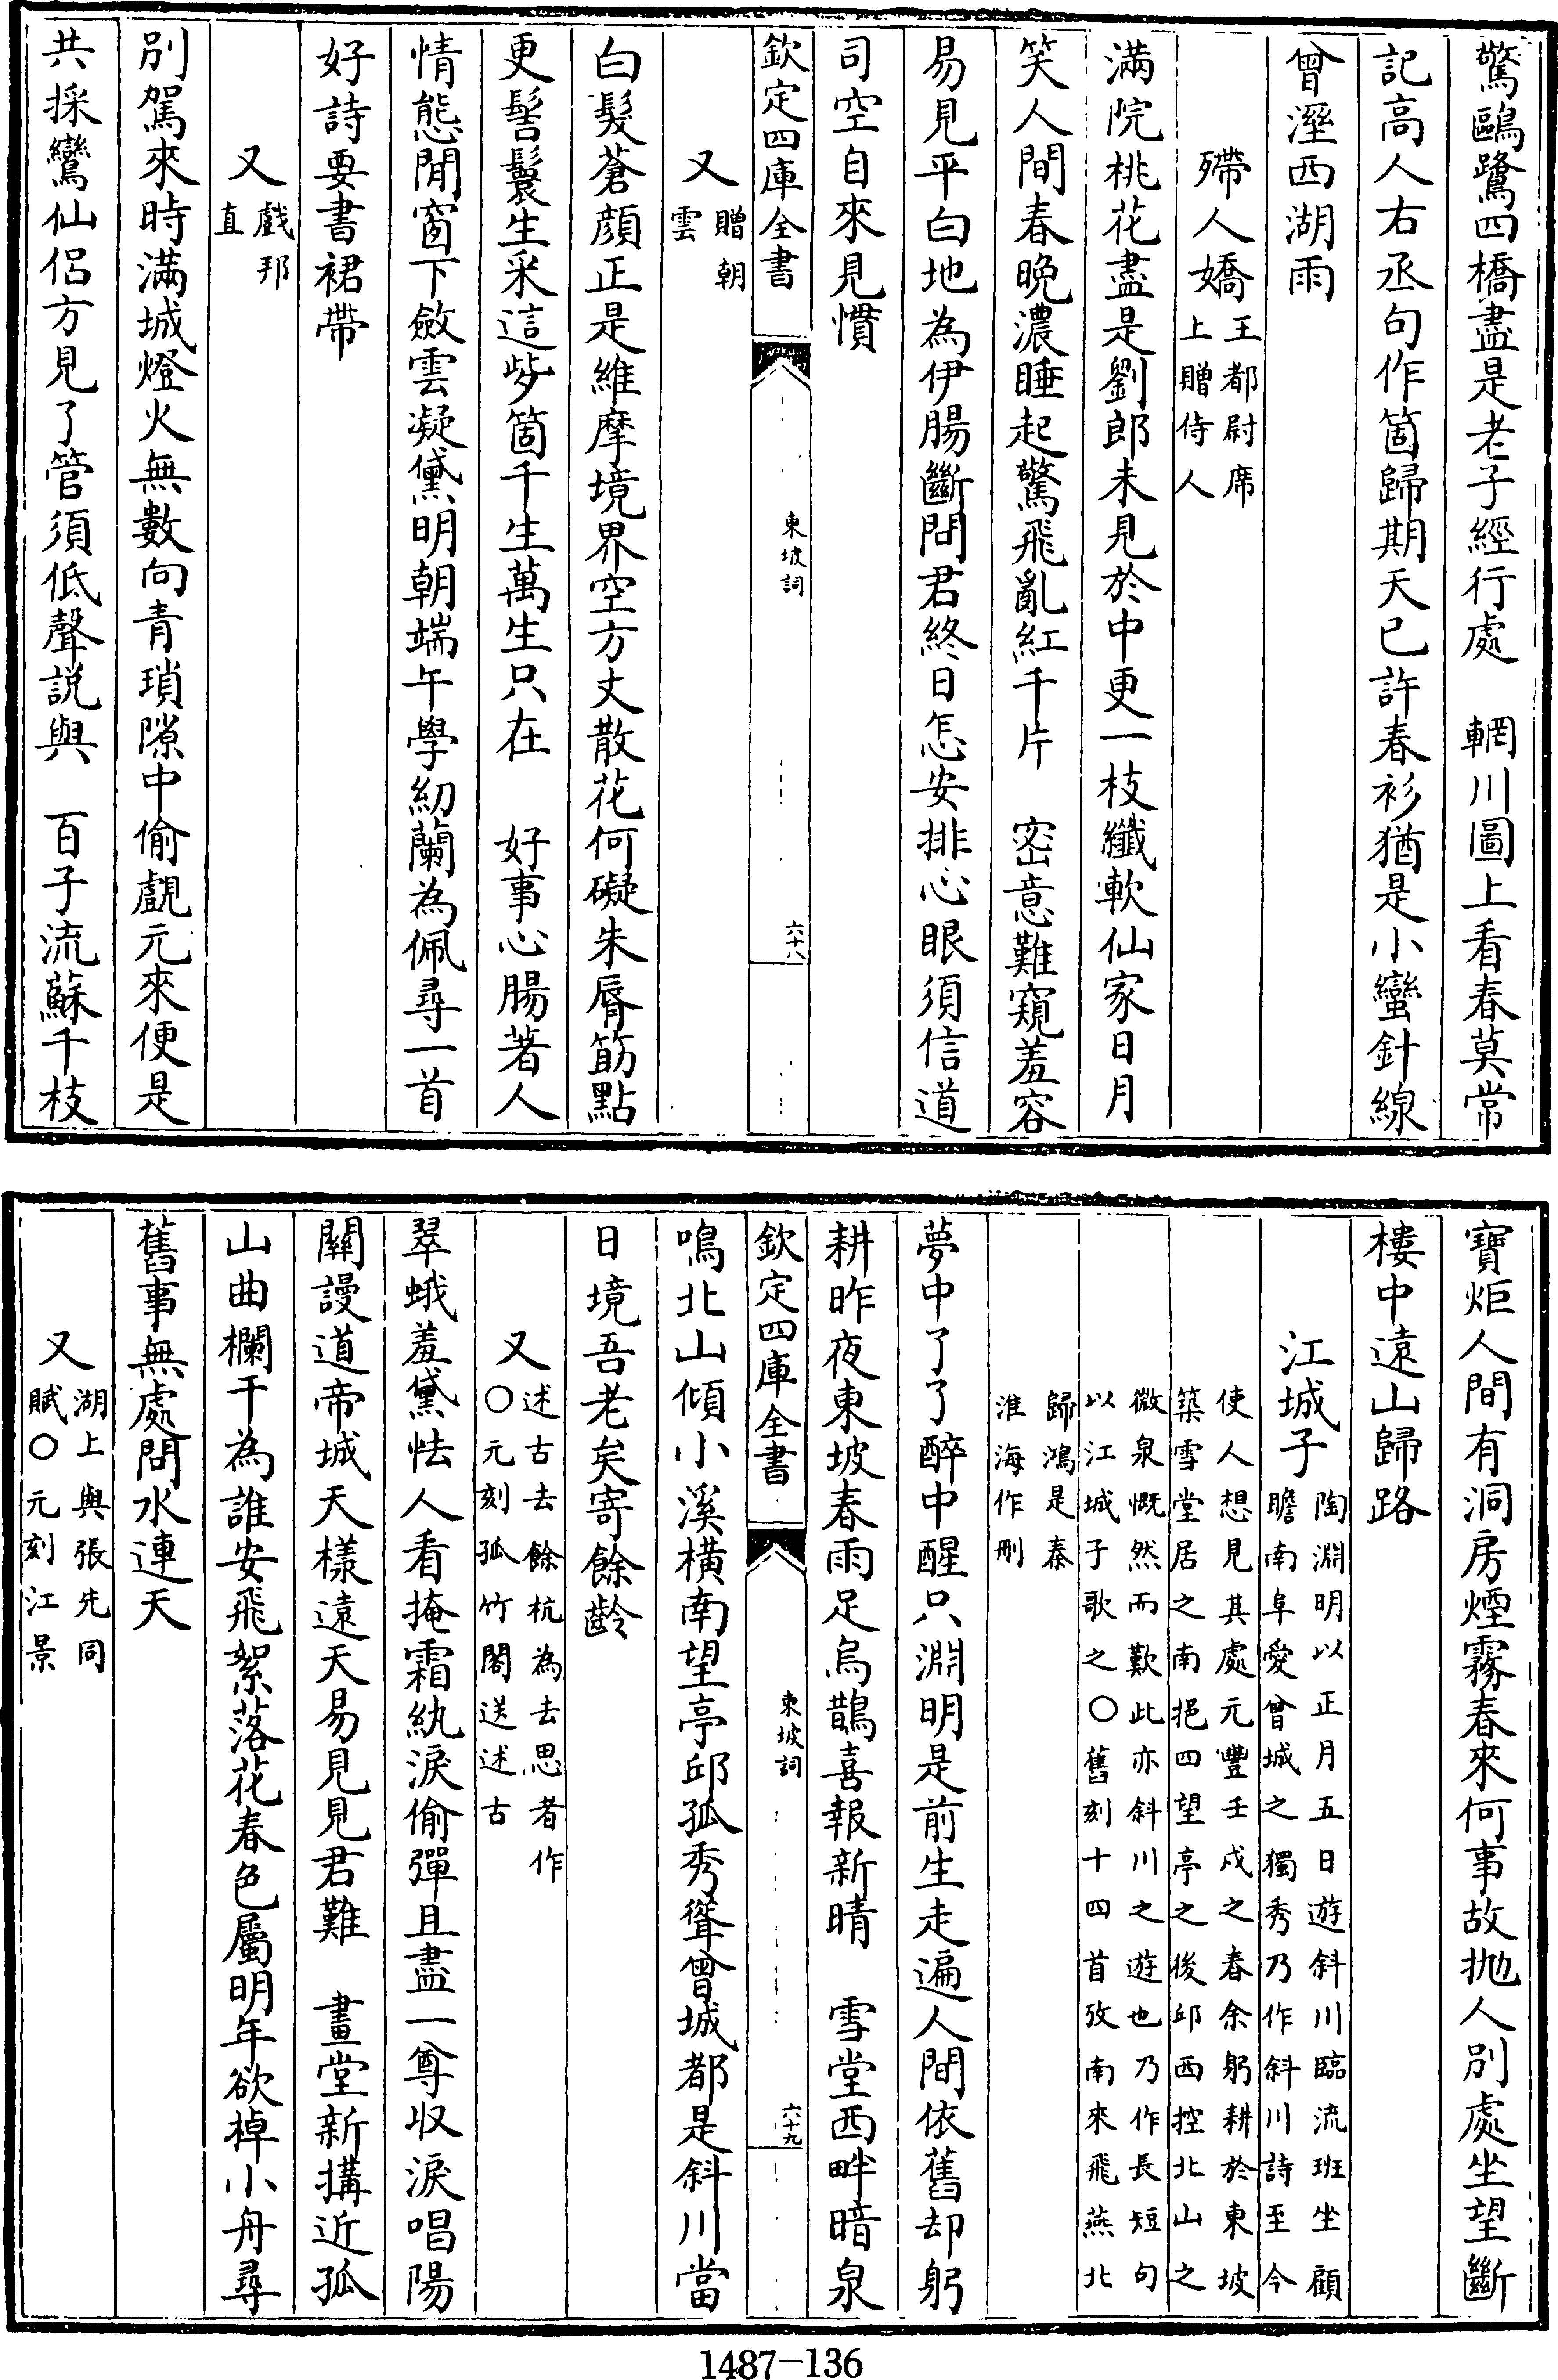 驚鷗鷺四橋盡是老子經行處　輞川圖上看春莫常
記高人右丞句作箇歸期天已許春衫猶是小蠻針線
曾溼西湖雨
殢人嬌王都尉席上贈侍人
滿院桃花盡是劉郎未見於中更一枝纖軟仙家日月
笑人間春晚濃睡起驚飛亂紅千片　密意難窺羞容
易見平白地為伊腸斷問君終日怎安排心眼須信道
司空自來見慣
欽定四庫全書　東坡詞　六十八
又贈朝雲
白髮蒼顏正是維摩境界空方丈散花何礙朱脣筯點
更髻鬟生采這些箇千生萬生只在　好事心腸著人
情態閒窗下斂雲凝黛明朝端午學紉蘭為佩尋一首
好詩要書裙帶
又戲邦直
別駕來時滿城燈火無數向青瑣隙中偷覷元來便是
共採鸞仙侶方見了管須低聲説與　百子流蘇千枝
寶炬人間有洞房煙霧春來何事故拋人別處坐望斷
樓中遠山歸路
江城子陶淵明以正月五日遊斜川臨流班坐顧
瞻南阜愛曾城之獨秀乃作斜川詩至今
使人想見其處元豐壬戌之春余躬耕於東坡
築雪堂居之南挹四望亭之後邱西控北山之
微泉慨然而歎此亦斜川之遊也乃作長短句
以江城子歌之○舊刻十四首攷南來飛燕北
歸鴻是秦
淮海作刪
夢中了了醉中醒只淵明是前生走遍人間依舊却躬
耕昨夜東坡春雨足烏鵲喜報新晴　雪堂西畔暗泉
欽定四庫全書　東坡詞　六十九
鳴北山傾小溪橫南望亭邱孤秀聳曾城都是斜川當
日境吾老矣寄餘齡
又述古去餘杭為去思者作
○元刻孤竹閣送述古
翠蛾羞黛怯人看掩霜紈淚偷彈且盡一尊収淚唱陽
關謾道帝城天樣遠天易見見君難　畫堂新搆近孤
山曲欄干為誰安飛絮落花春色屬明年欲棹小舟尋
舊事無處問水連天
又湖上與張先同
賦○元刻江景
1487—136